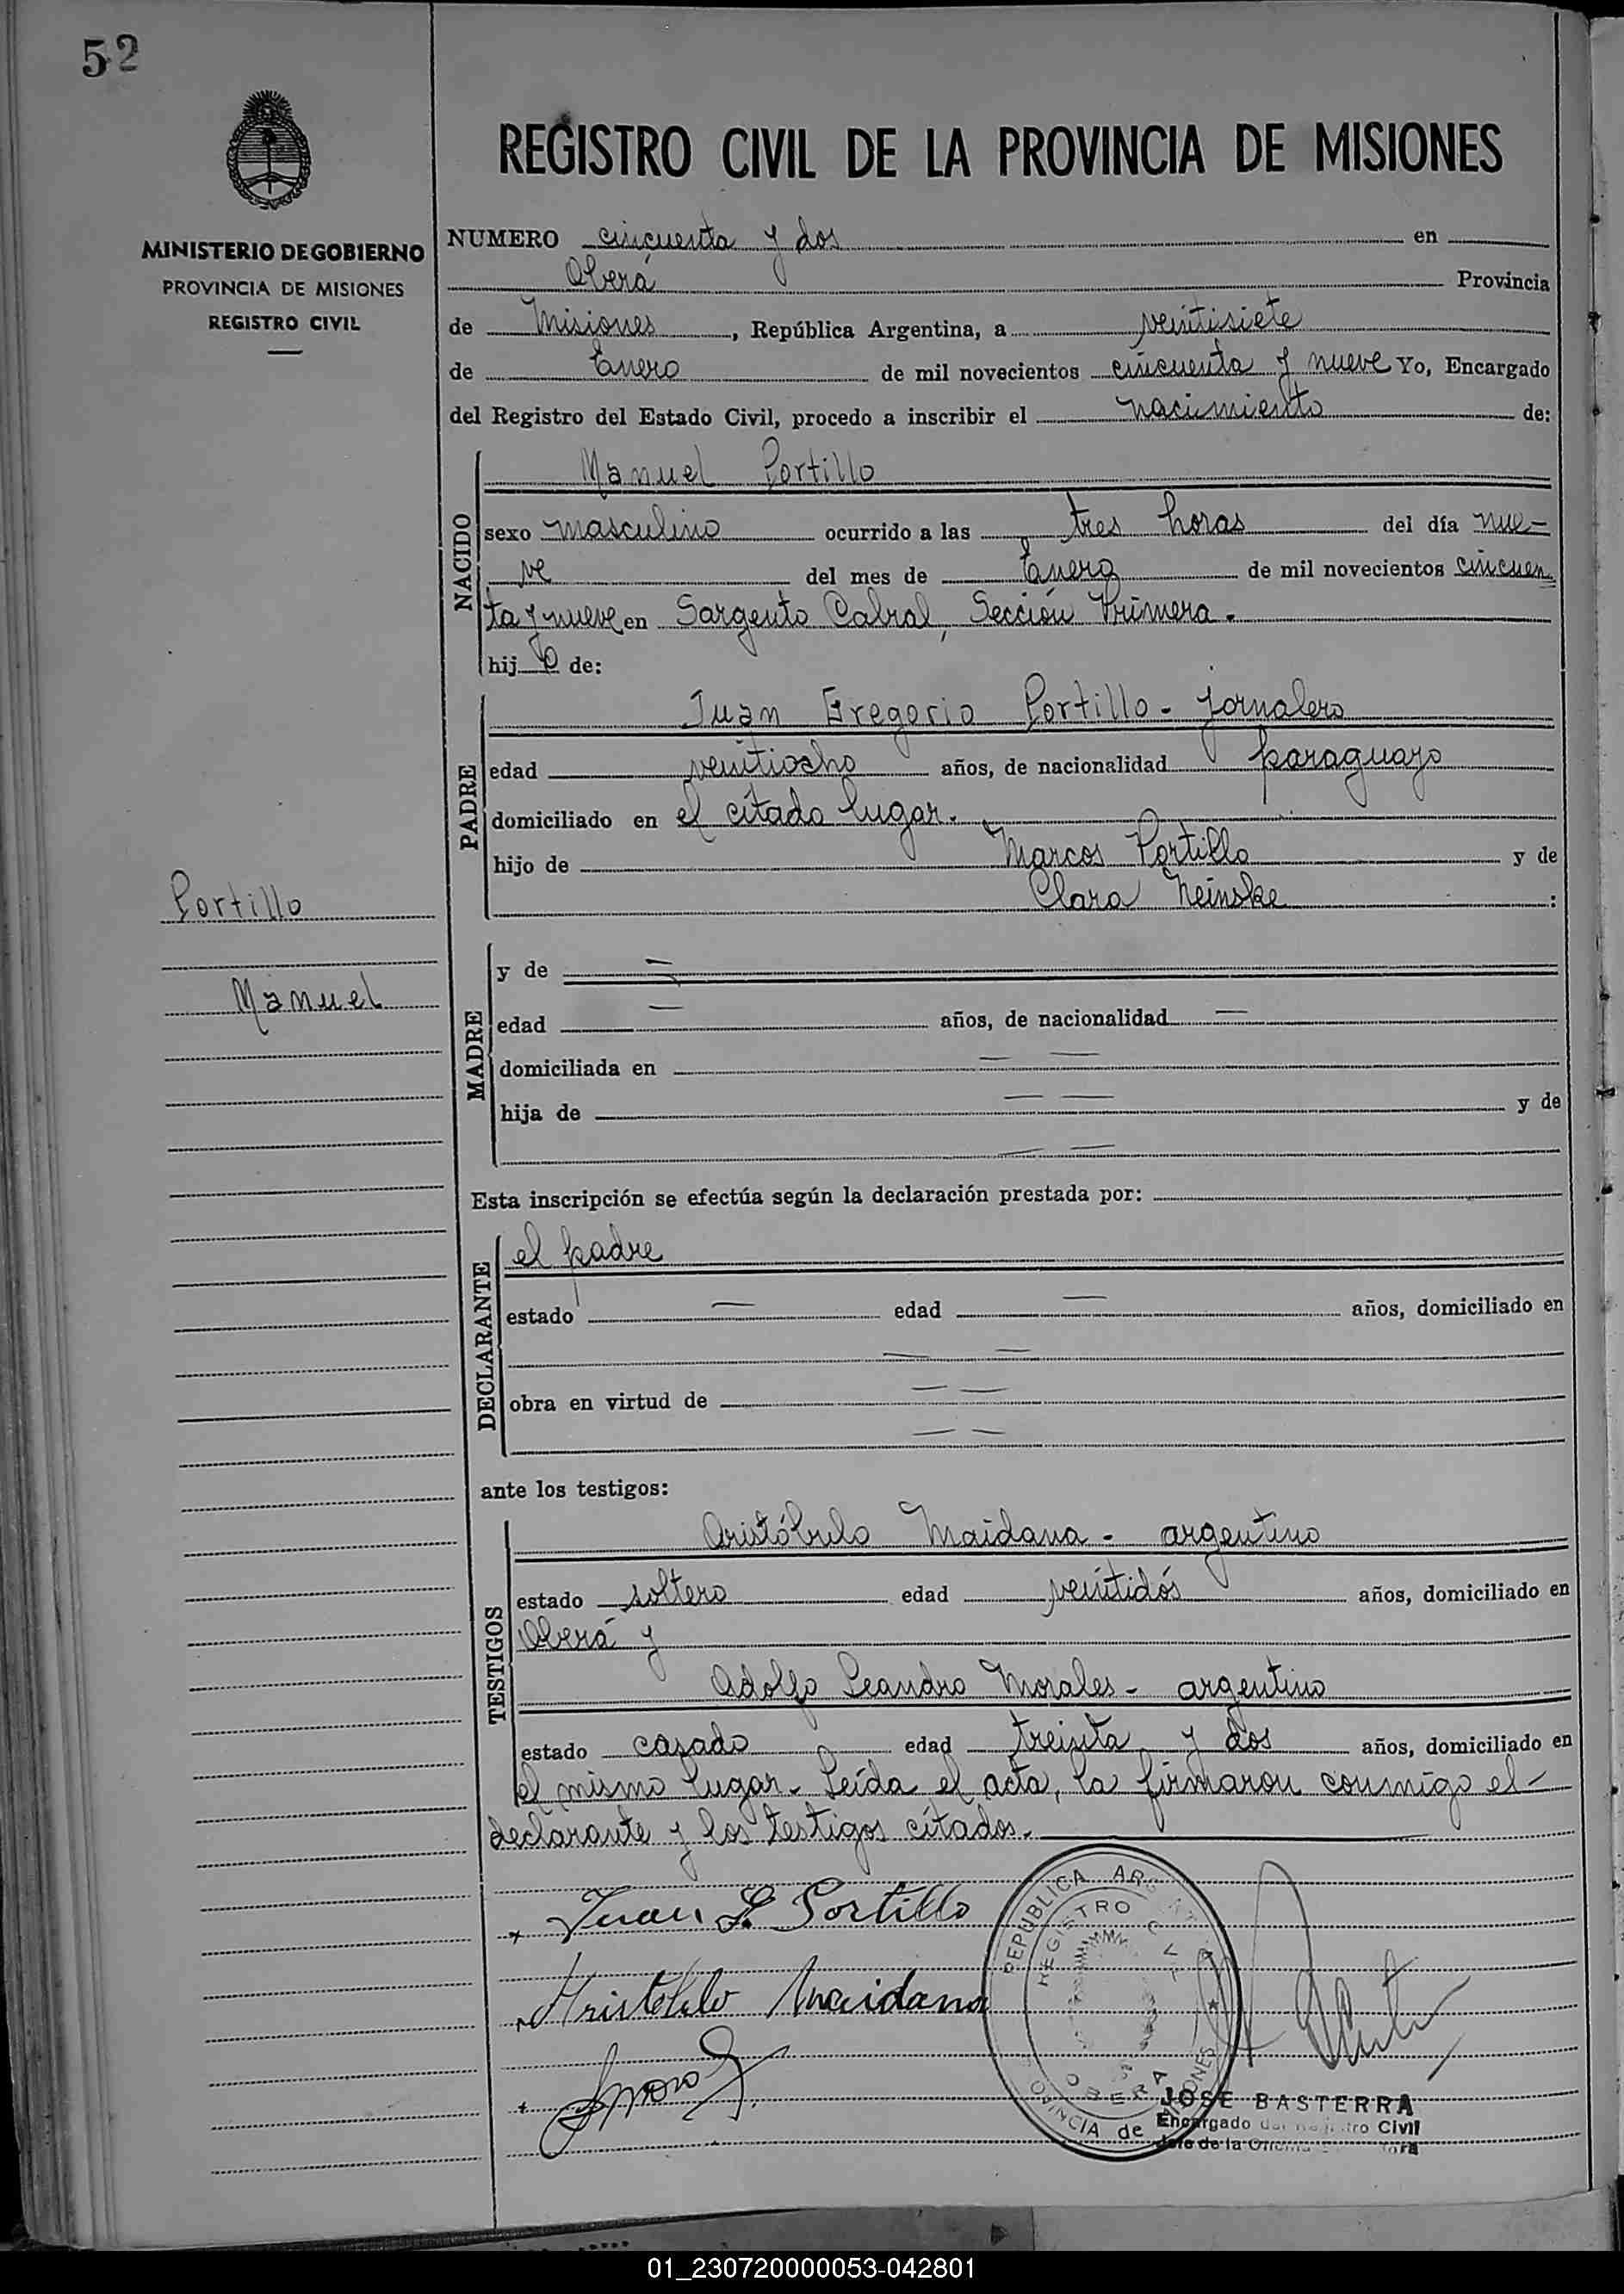 52
REGISTRO CIVIL DE LA PROVINCIA DE MISIONES
MINISTERIO DE GOBIERNO
PROVINCIA DE MISIONES
REGISTRO CIVIL
NUMERO cincuenta y dos en
Oberá Provincia
de Misiones, República Argentina, a veintisiete
de Enero de mil novecientos cincuenta y nueve Yo, Encargado
del Registro del Estado Civil, procedo a inscribir el nacimiento de:
NACIDO
Manuel Portillo
sexo masculino ocurrido a las tres horas del día nue-
ve del mes de Enero de mil novecientos cincuen
ta y nueve en Sargento Cabral, Sección Primera.
hijo de:
PADRE
Juan Gregorio Portillo - jornalero
edad veintiocho años, de nacionalidad paraguayo
domiciliado en el citado lugar.
hijo de Marcos Portillo y de
Clara Neinske :
Portillo
Manuel
MADRE
y de —
edad — años, de nacionalidad —
domiciliada en — —
hija de — — y de
— —
Esta inscripción se efectúa según la declaración prestada por:
DECLARANTE
el padre
estado — edad — años, domiciliado en
— —
obra en virtud de — —
— —
ante los testigos:
TESTIGOS
Aristóbulo Maidana - argentino
estado soltero edad veintidós años, domiciliado en
Oberá y
Adolfo Leandro Morales - argentino
estado casado edad treinta y dos años, domiciliado en
el mismo lugar. Leída el acta, la firmaron conmigo el-
declarante y los testigos citados.
Juan G. Portillo
Aristobulo Maidana
REPUBLICA ARG
REGISTRO CIVIL
OBERA
OVINCIA de MISIONES
JOSE BASTERRA
Encargado del Registro Civil
Jefe de la
01_230720000053-042801